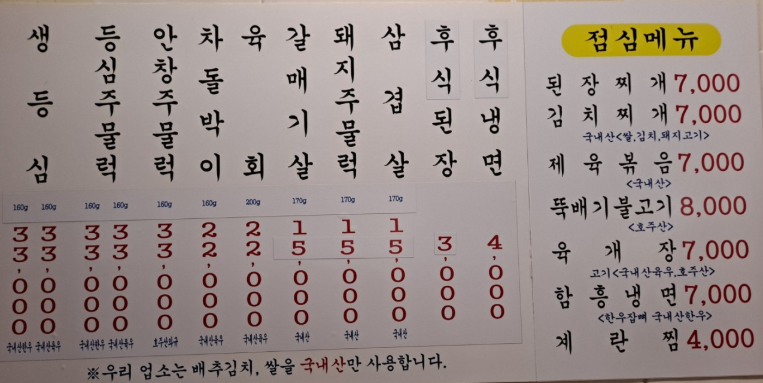 생등심 160g 160g 33,000 33,000 국내산한우 국내산육우
등심주물럭 160g 160g 33,000 33,000 국내산한우 국내산육우
안창주물럭 160g 33,000
차돌박이 160g 22,000 국내산육우
육회 200g 22,000 국내산육우
갈매기살 170g 15,000 국내산
돼지주물럭 170g 15,000 국내산
삼겹살 170g 15,000 국내산
후식된장 3,000
후식냉면 4,000
※우리 업소는 배추김치, 쌀을 국내산만 사용합니다.
점심메뉴
된장찌개 7,000
김치찌개 7,000
국내산<쌀,김치,돼지고기>
제육볶음 7,000
<국내산>
뚝배기불고기 8,000
<호주산>
육개장 7,000
고기<국내산육우,호주산>
함흥냉면 7,000
<한우잡뼈 국내산한우>
계란찜 4,000